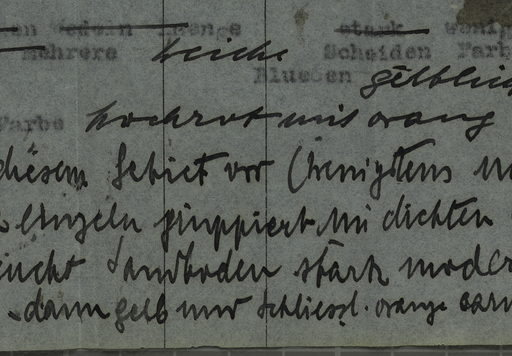 en Wedern Laenge stark wenig
mehrere weiche Scheiden Farbe
Blueten gelblich
Farbe hochrot mit orang
diesem Gebiet vor (wenigstens
einzeln gruppiert im dichten
feucht Sandboden stark moder
dann gelb und schliessl. orange